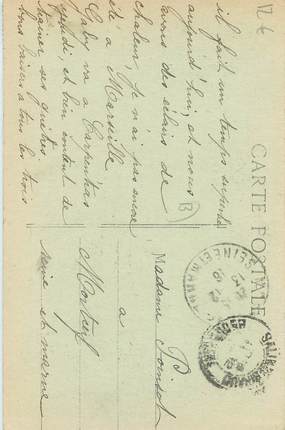 CARTE POSTALE
il fait un temps superbe
aujourd'hui, et nous
avons des eclairs de
chaleur, je n'ai pas encore
été a Marseille
Gaby va a Carpentras
jeudi, et bien content de
trainer ses guêtres
bons baisers a tous les trois
Madame P. Poinsot
a
Montceaux
Seine et marne
B